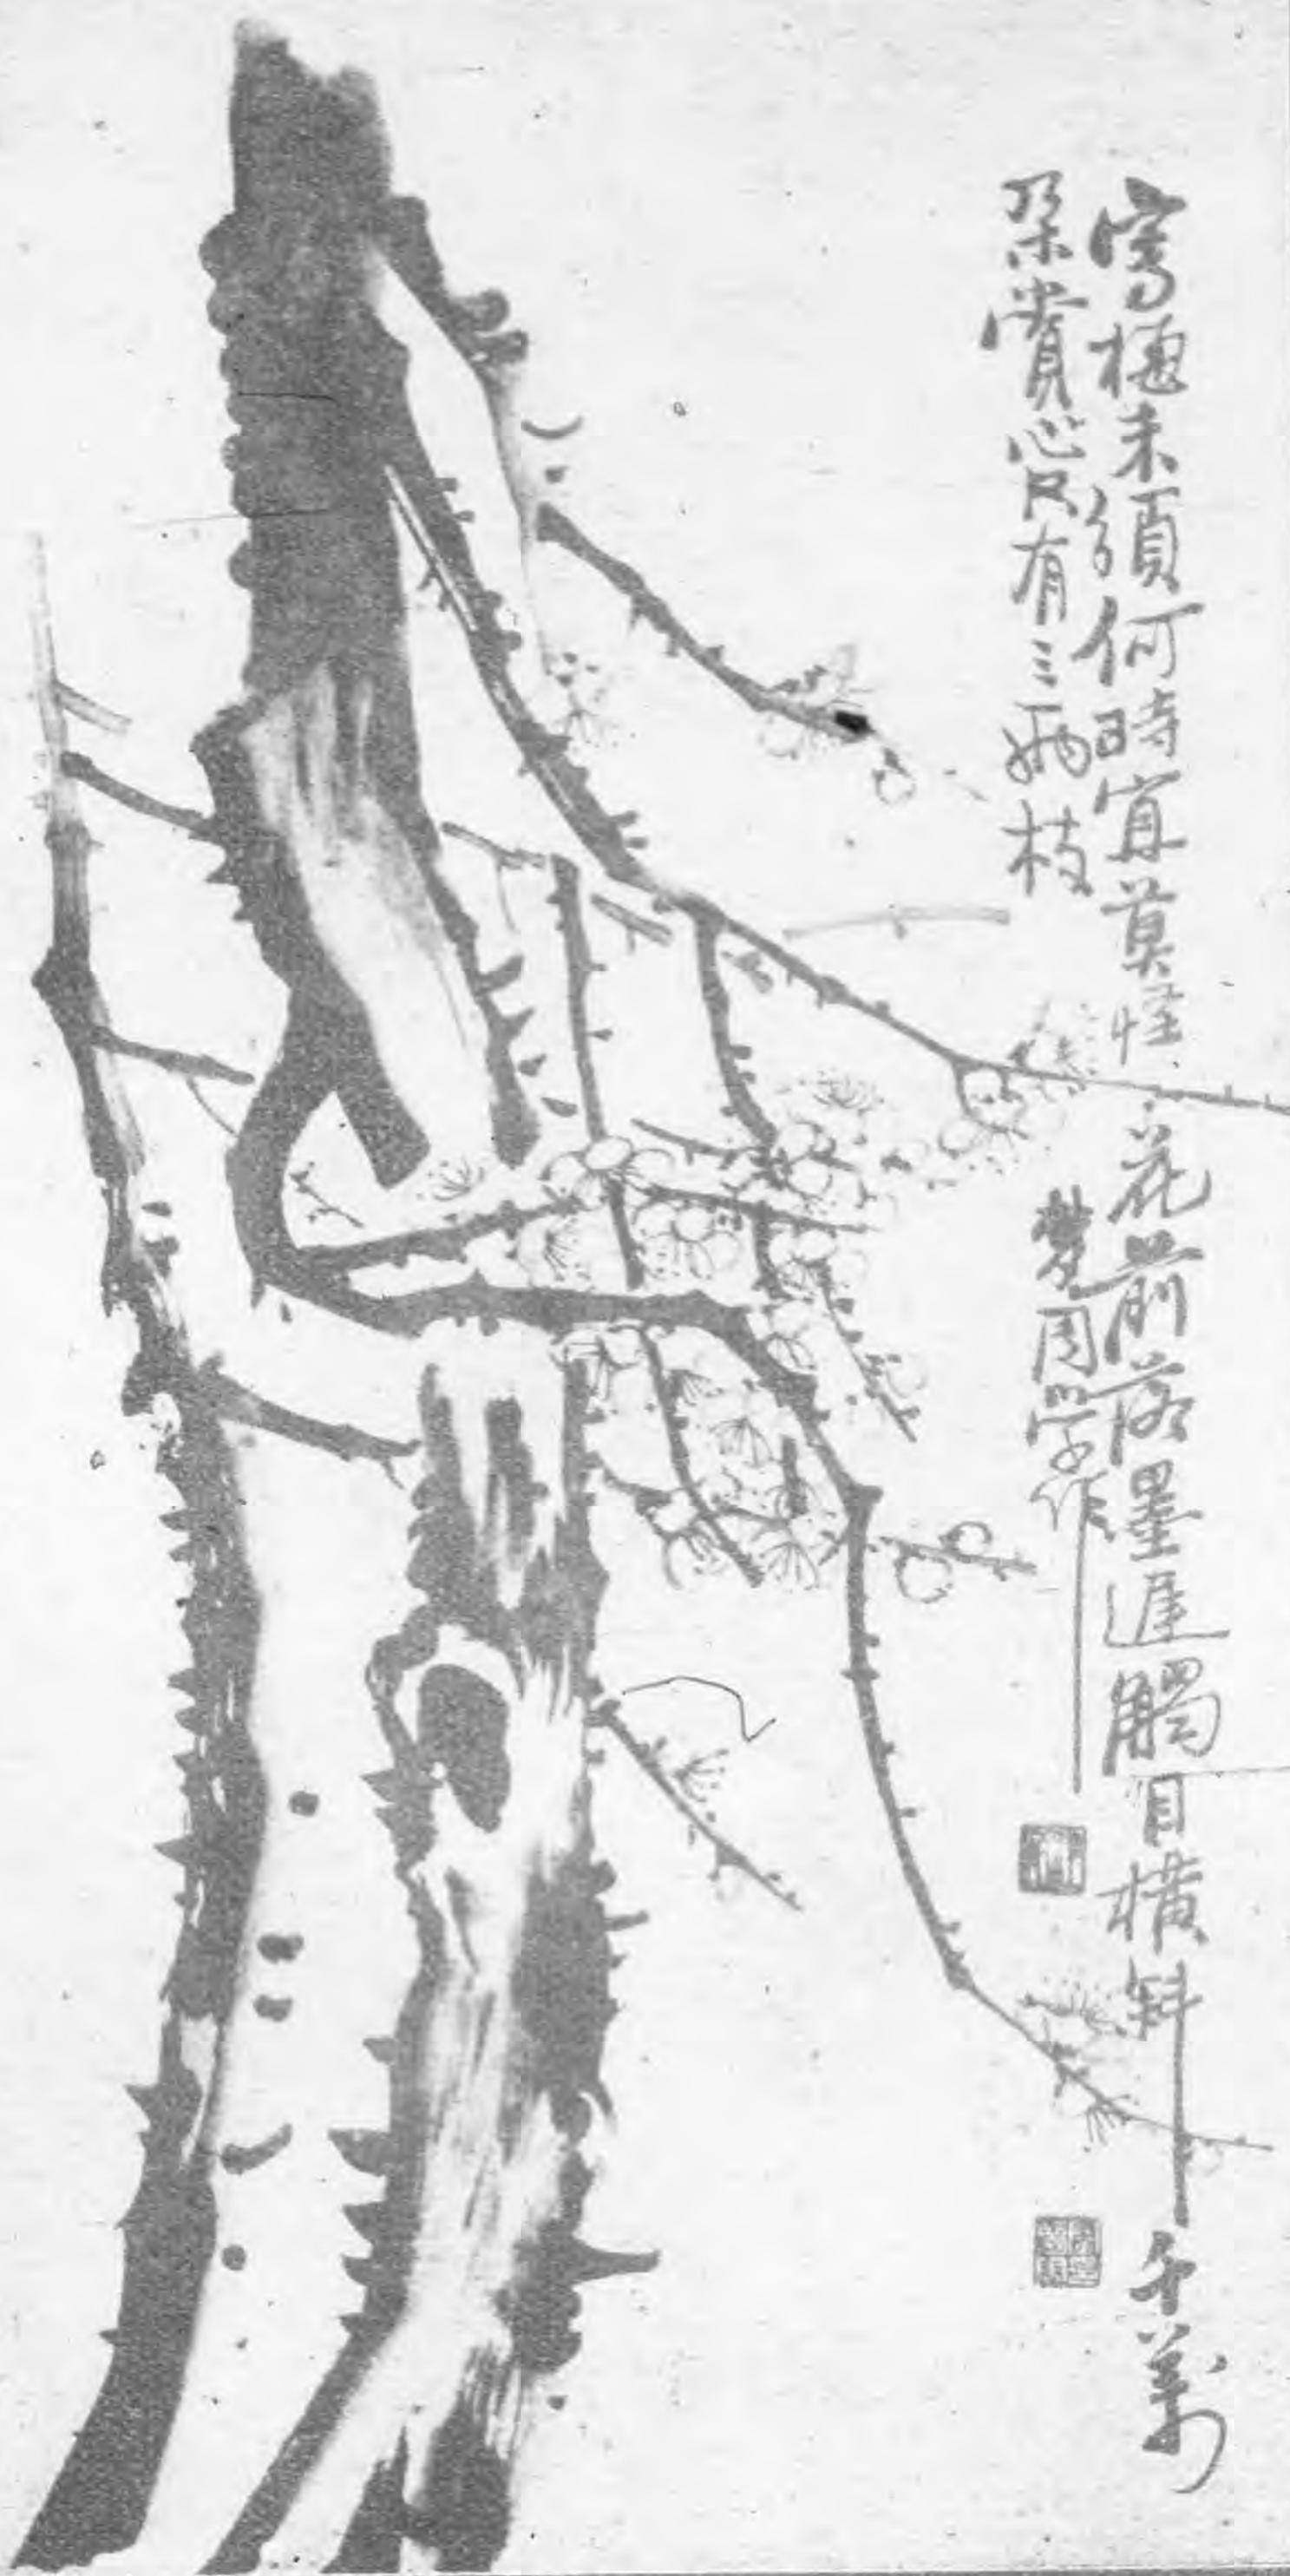 寫梅未須何時宜莫怪花前落墨遲觸目橫斜千萬
朵賞心只有三兩枝
夢周學作